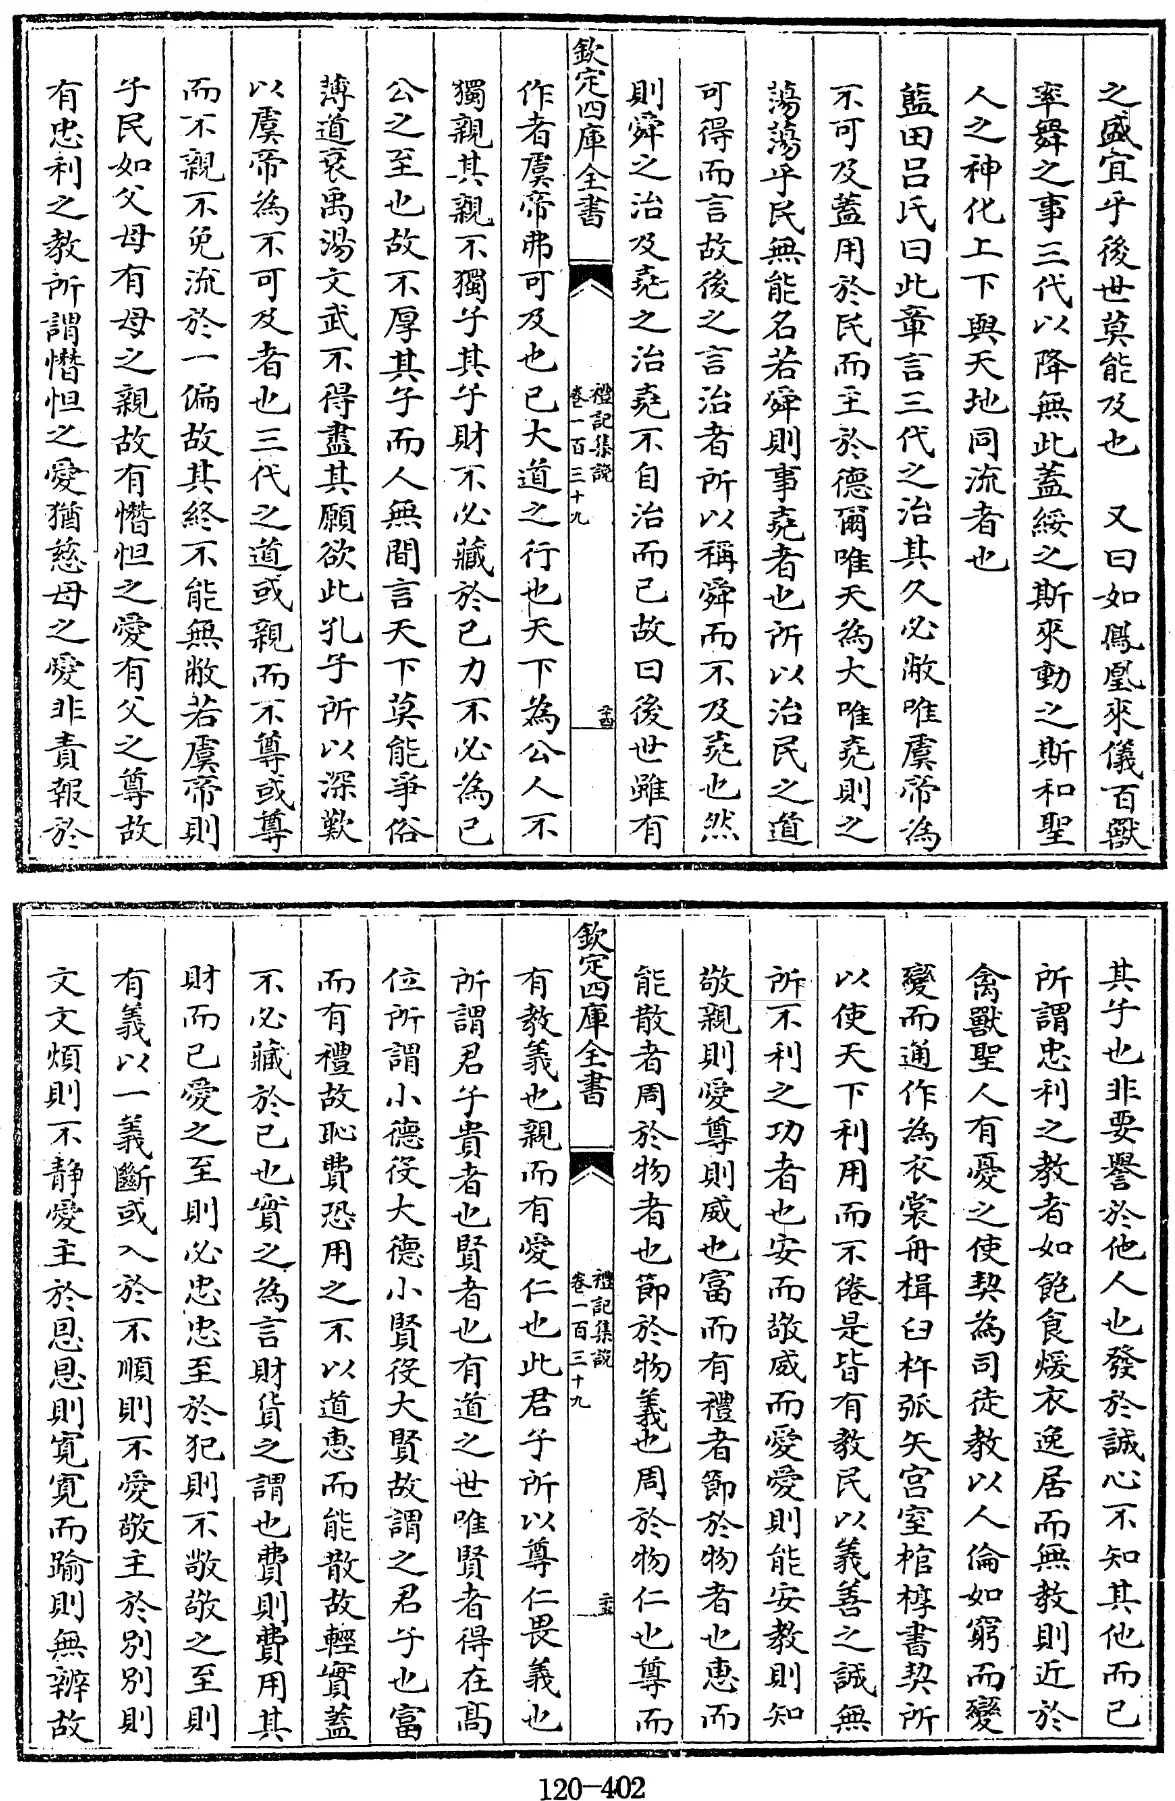 之盛宜乎後世莫能及也　又曰如鳳凰來儀百獸
率舞之事三代以降無此蓋綏之斯來動之斯和聖
人之神化上下與天地同流者也
藍田吕氏曰此章言三代之治其久必敝唯虞帝為
不可及蓋用於民而至於德爾唯天為大唯堯則之
蕩蕩乎民無能名若舜則事堯者也所以治民之道
可得而言故後之言治者所以稱舜而不及堯也然
則舜之治及堯之治堯不自治而已故曰後世雖有
欽定四庫全書
禮記集說
卷一百三十九
三十四
作者虞帝弗可及也已大道之行也天下為公人不
獨親其親不獨子其子財不必藏於己力不必為己
公之至也故不厚其子而人無間言天下莫能爭俗
薄道衰禹湯文武不得盡其願欲此孔子所以深歎
以虞帝為不可及者也三代之道或親而不尊或尊
而不親不免流於一偏故其終不能無敝若虞帝則
子民如父母有母之親故有憯怛之愛有父之尊故
有忠利之教所謂憯怛之愛猶慈母之愛非責報於
其子也非要譽於他人也發於誠心不知其他而已
所謂忠利之教者如飽食煖衣逸居而無教則近於
禽獸聖人有憂之使契為司徒教以人倫如窮而變
變而通作為衣裳舟楫臼杵弧矢宫室棺槨書契所
以使天下利用而不倦是皆有教民以義善之誠無
所不利之功者也安而敬威而愛愛則能安教則知
敬親則愛尊則威也富而有禮者節於物者也惠而
能散者周於物者也節於物義也周於物仁也尊而
欽定四庫全書
禮記集說
卷一百三十九
三十五
有教義也親而有愛仁也此君子所以尊仁畏義也
所謂君子貴者也賢者也有道之世唯賢者得在髙
位所謂小德役大德小賢役大賢故謂之君子也富
而有禮故恥費恐用之不以道惠而能散故輕實蓋
不必藏於己也實之為言財貨之謂也費則費用其
財而已愛之至則必忠忠至於犯則不敬敬之至則
有義以一義斷或入於不順則不愛敬主於别别則
文文煩則不静愛主於恩恩則寛寛而踰則無辨故
120-402